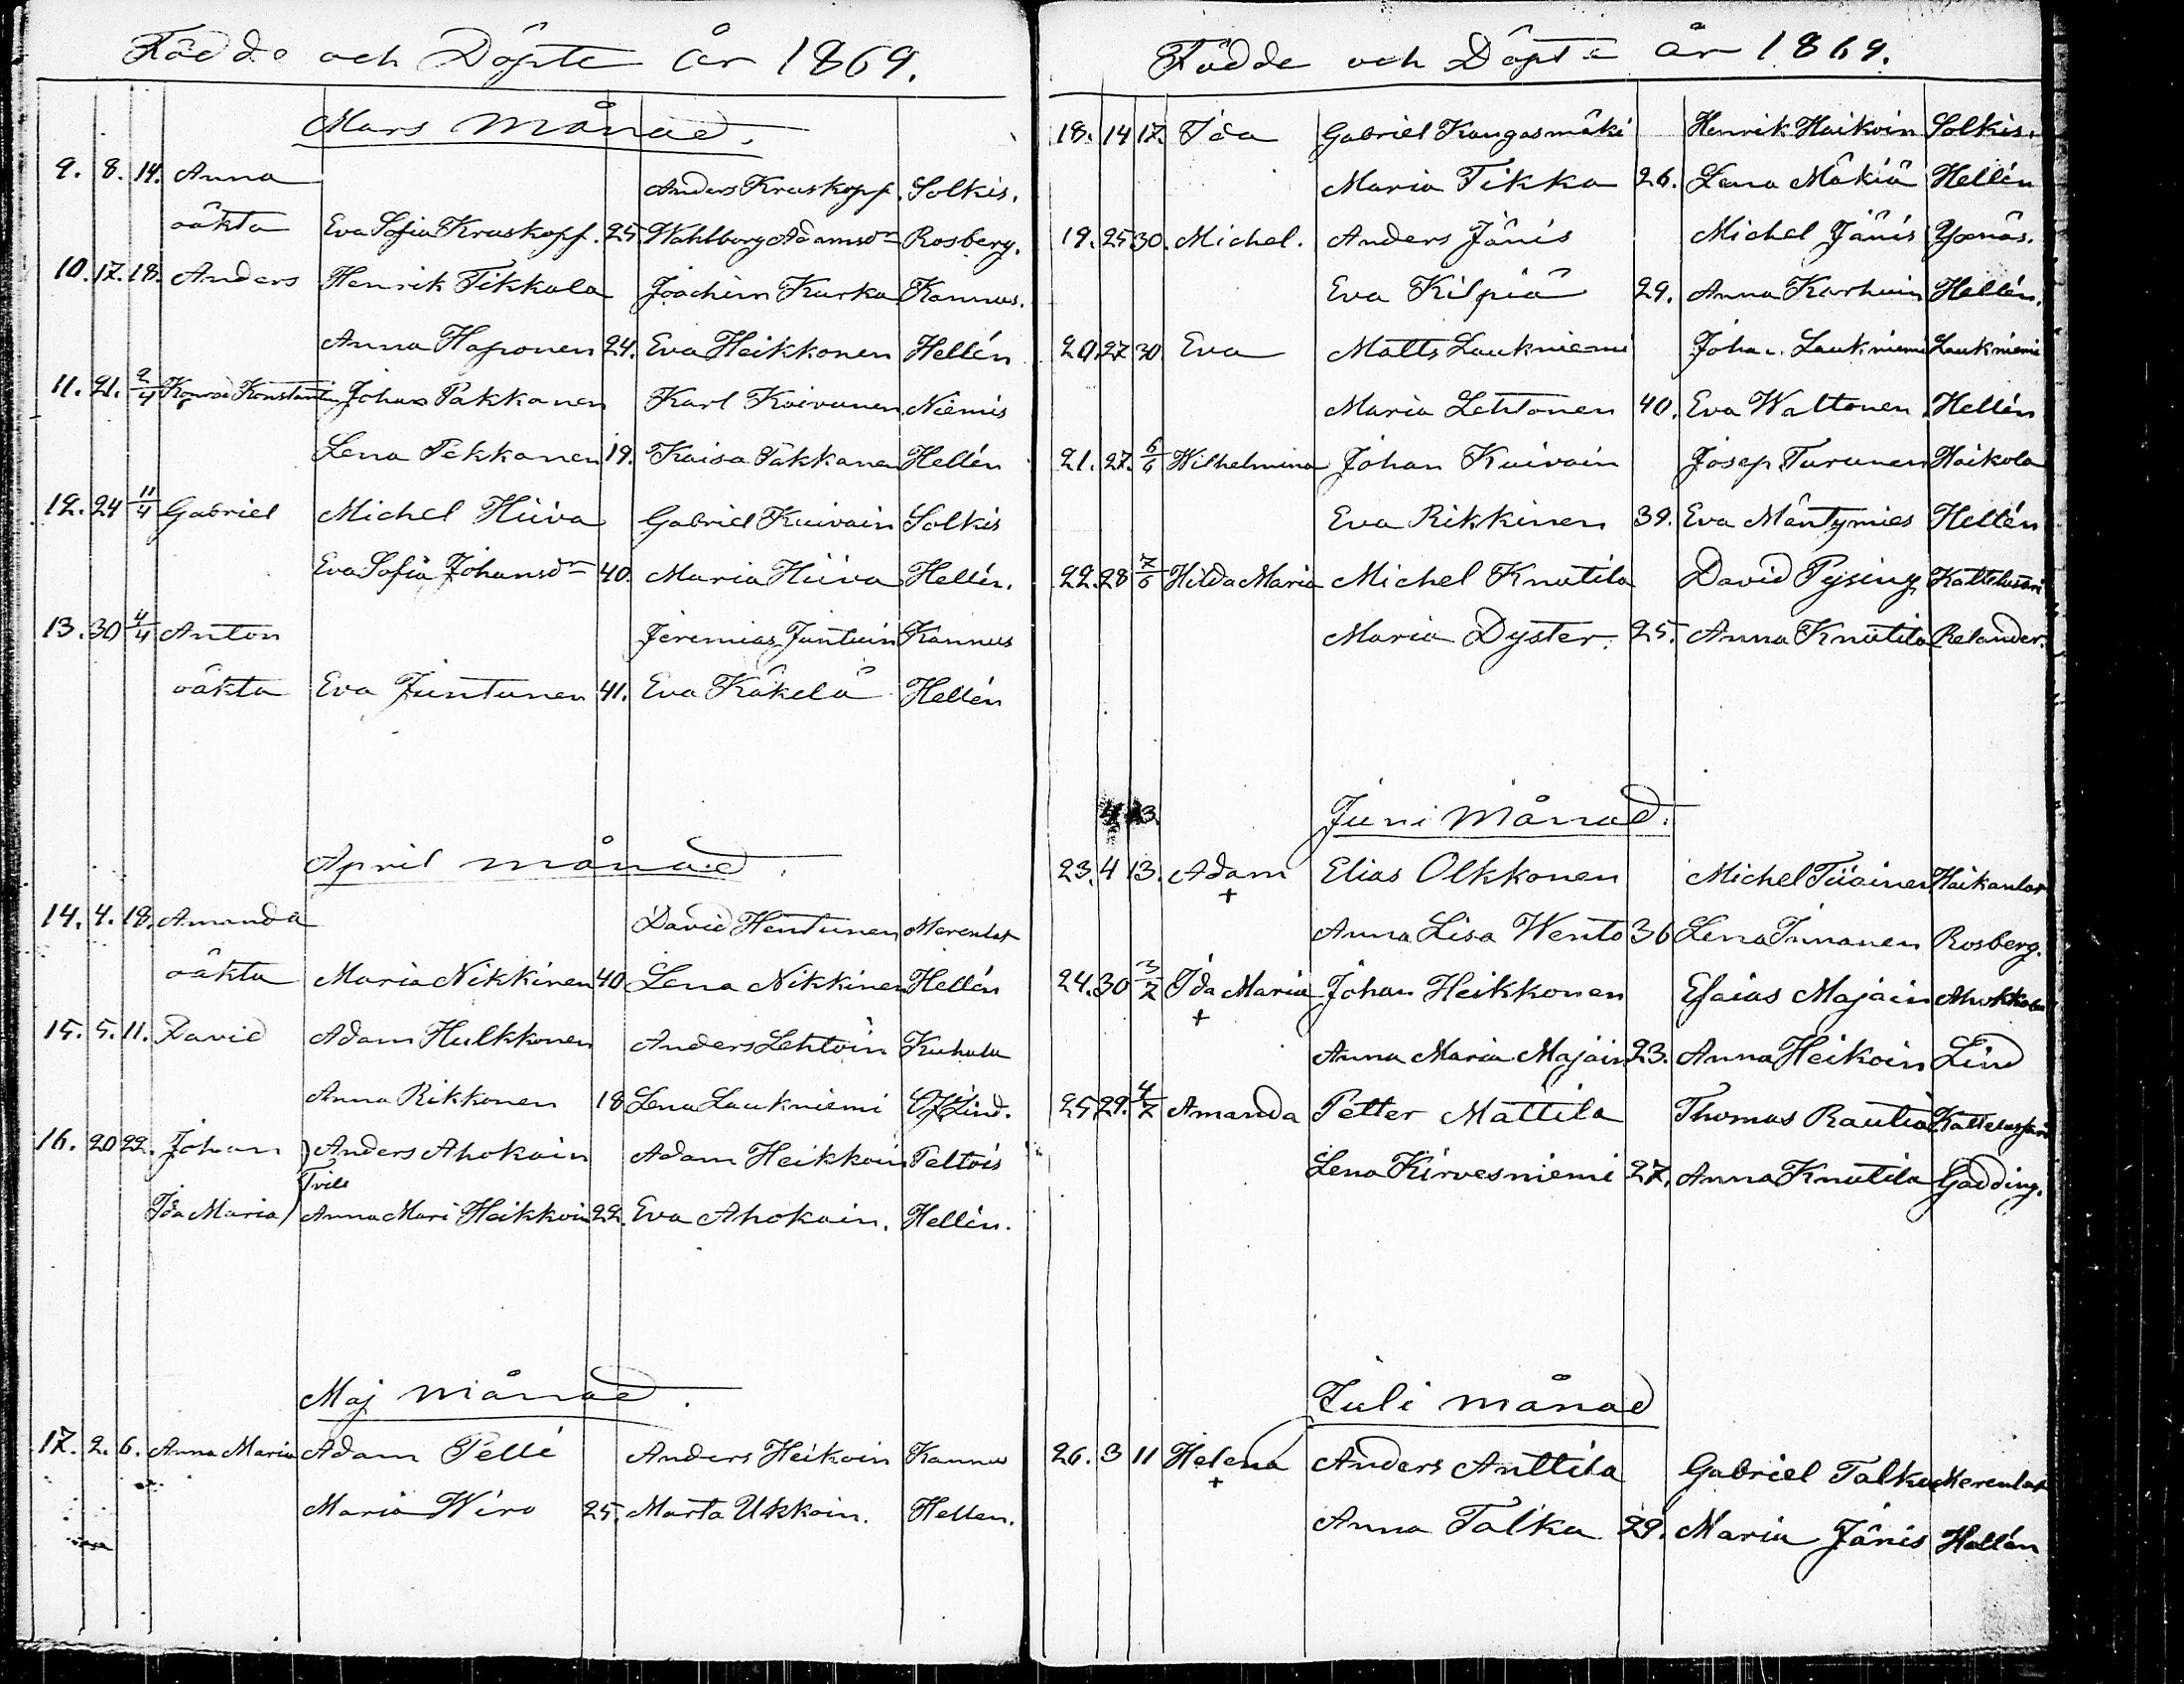 Födde och Döpte år 1869.
Mars månad.
9. 8. 14. Anna Anders Kruskopf. Solkis.
oäkta Eva Sofia Kruskopf. 25. Wahlborg Adamsdr Rosberg.
10. 17. 18. Anders Henrik Tikkala Joachim Kurka Kannus.
Anna Haponen 24. Eva Heikkonen Hellén
11. 21. 2/4 Konrad Konstantin Johan Pakkanen Karl Koivunen Niemis
Lena Pekkanen 19. Kaisa Pakkanen Hellén
12. 24 11/4 Gabriel Michel Hiiva Gabriel Kuivain Solkis
Eva Sofia Johansdr 40. Maria Hiiva Hellén.
13. 30 4/4 Anton Jeremias Juntuin Kannus
oäkta Eva Juntunen 41. Eva Käkelä Hellén
April månad.
14. 4. 18. Amanda David Hentunen Merenlat
oäkta Maria Nikkinen 40 Lena Nikkinen Hellén
15. 5. 11. David Adam Hulkkonen Anders Lehtoin Kuhala
Anna Rikkonen 18 Lena Laukniemi Lind.
16. 20 22. Johan ) Anders Ahokain Adam Heikkoin Peltois
Tvill
Ida Maria ) Anna Mari Heikkoin 22. Eva Ahokain. Hellén.
Maj månad.
17. 2. 6. Anna Maria Adam Pelli Anders Heikoin Kannus
Maria Wiro 25. Marta Ukkoin. Hellen.
Födde och Döpte år 1869.
18. 14 17. Ida Gabriel Kangasmäki Henrik Haikoin Solkis.
Maria Tikka 26. Lena Mäkiä Hellén
19. 25 30. Michel. Anders Jänis Michel Jänis Yxnäs.
Eva Kilpiä 29. Anna Karhuin Hellén.
20. 27 30. Eva Matts Laukniemi Johan. Laukniemi Laukniemi
Maria Lehtonen 40. Eva Waltonen. Hellén
21. 27. 6/6 Wilhelmina Johan Kuivain Josep Turunen Haikola
Eva Rikkinen 39. Eva Mäntymies Hellén
22. 28 7/6 Hilda Maria Michel Knutila David Pysing Kattelusari
Maria Dyster. 25. Anna Knutila Relander.
4 13.
Juni månad.
23. 4 13. Adam Elias Olkkonen Michel Tiiainen Haikanlat
+
Anna Lisa Wento 36 Lena Innanen Rosberg.
24. 30 3/7 Ida Maria Johan Heikkonen Esaias Majain
+
Anna Maria Majain 23. Anna Heikoin Lind
25. 29. 4/7 Amanda Petter Mattila Thomas Rautia Kattelussari
Lena Kirvesniemi 27. Anna Knutila Gadding.
Juli månad
26. 3 11 Helena Anders Anttila Gabriel Talka Merenlat
+
Anna Talka 29. Maria Jänis Hellén